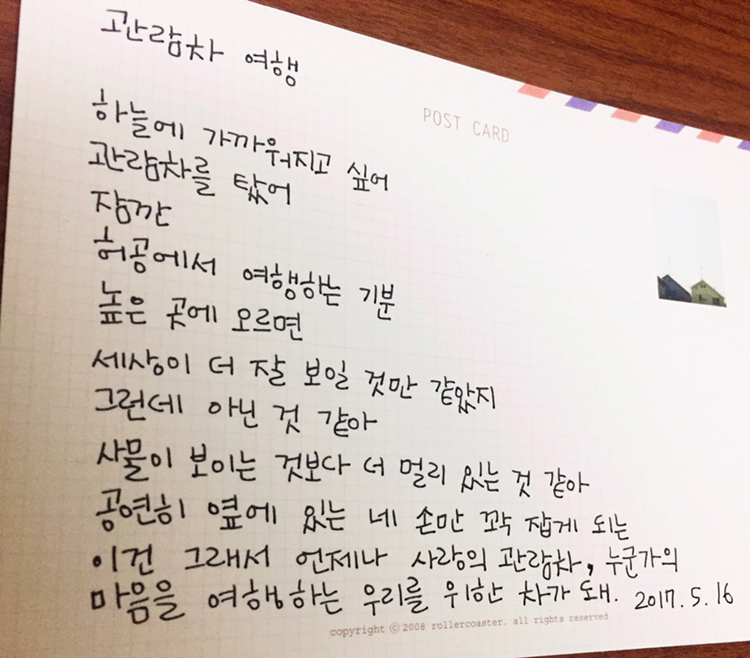 관람차 여행
POST CARD
하늘에 가까워지고 싶어
관람차를 탔어
잠깐
허공에서 여행하는 기분
높은 곳에 오르면
세상이 더 잘 보일 것만 같았지
그런데 아닌 것 같아
사물이 보이는 것보다 더 멀리 있는 것 같아
공연히 옆에 있는 네 손만 꽉 잡게 되는
이건 그래서 언제나 사랑의 관람차, 누군가의
마음을 여행하는 우리를 위한 차가 돼. 2017. 5. 16
copyright ⓒ 2008 rollercoaster. all rights reserved